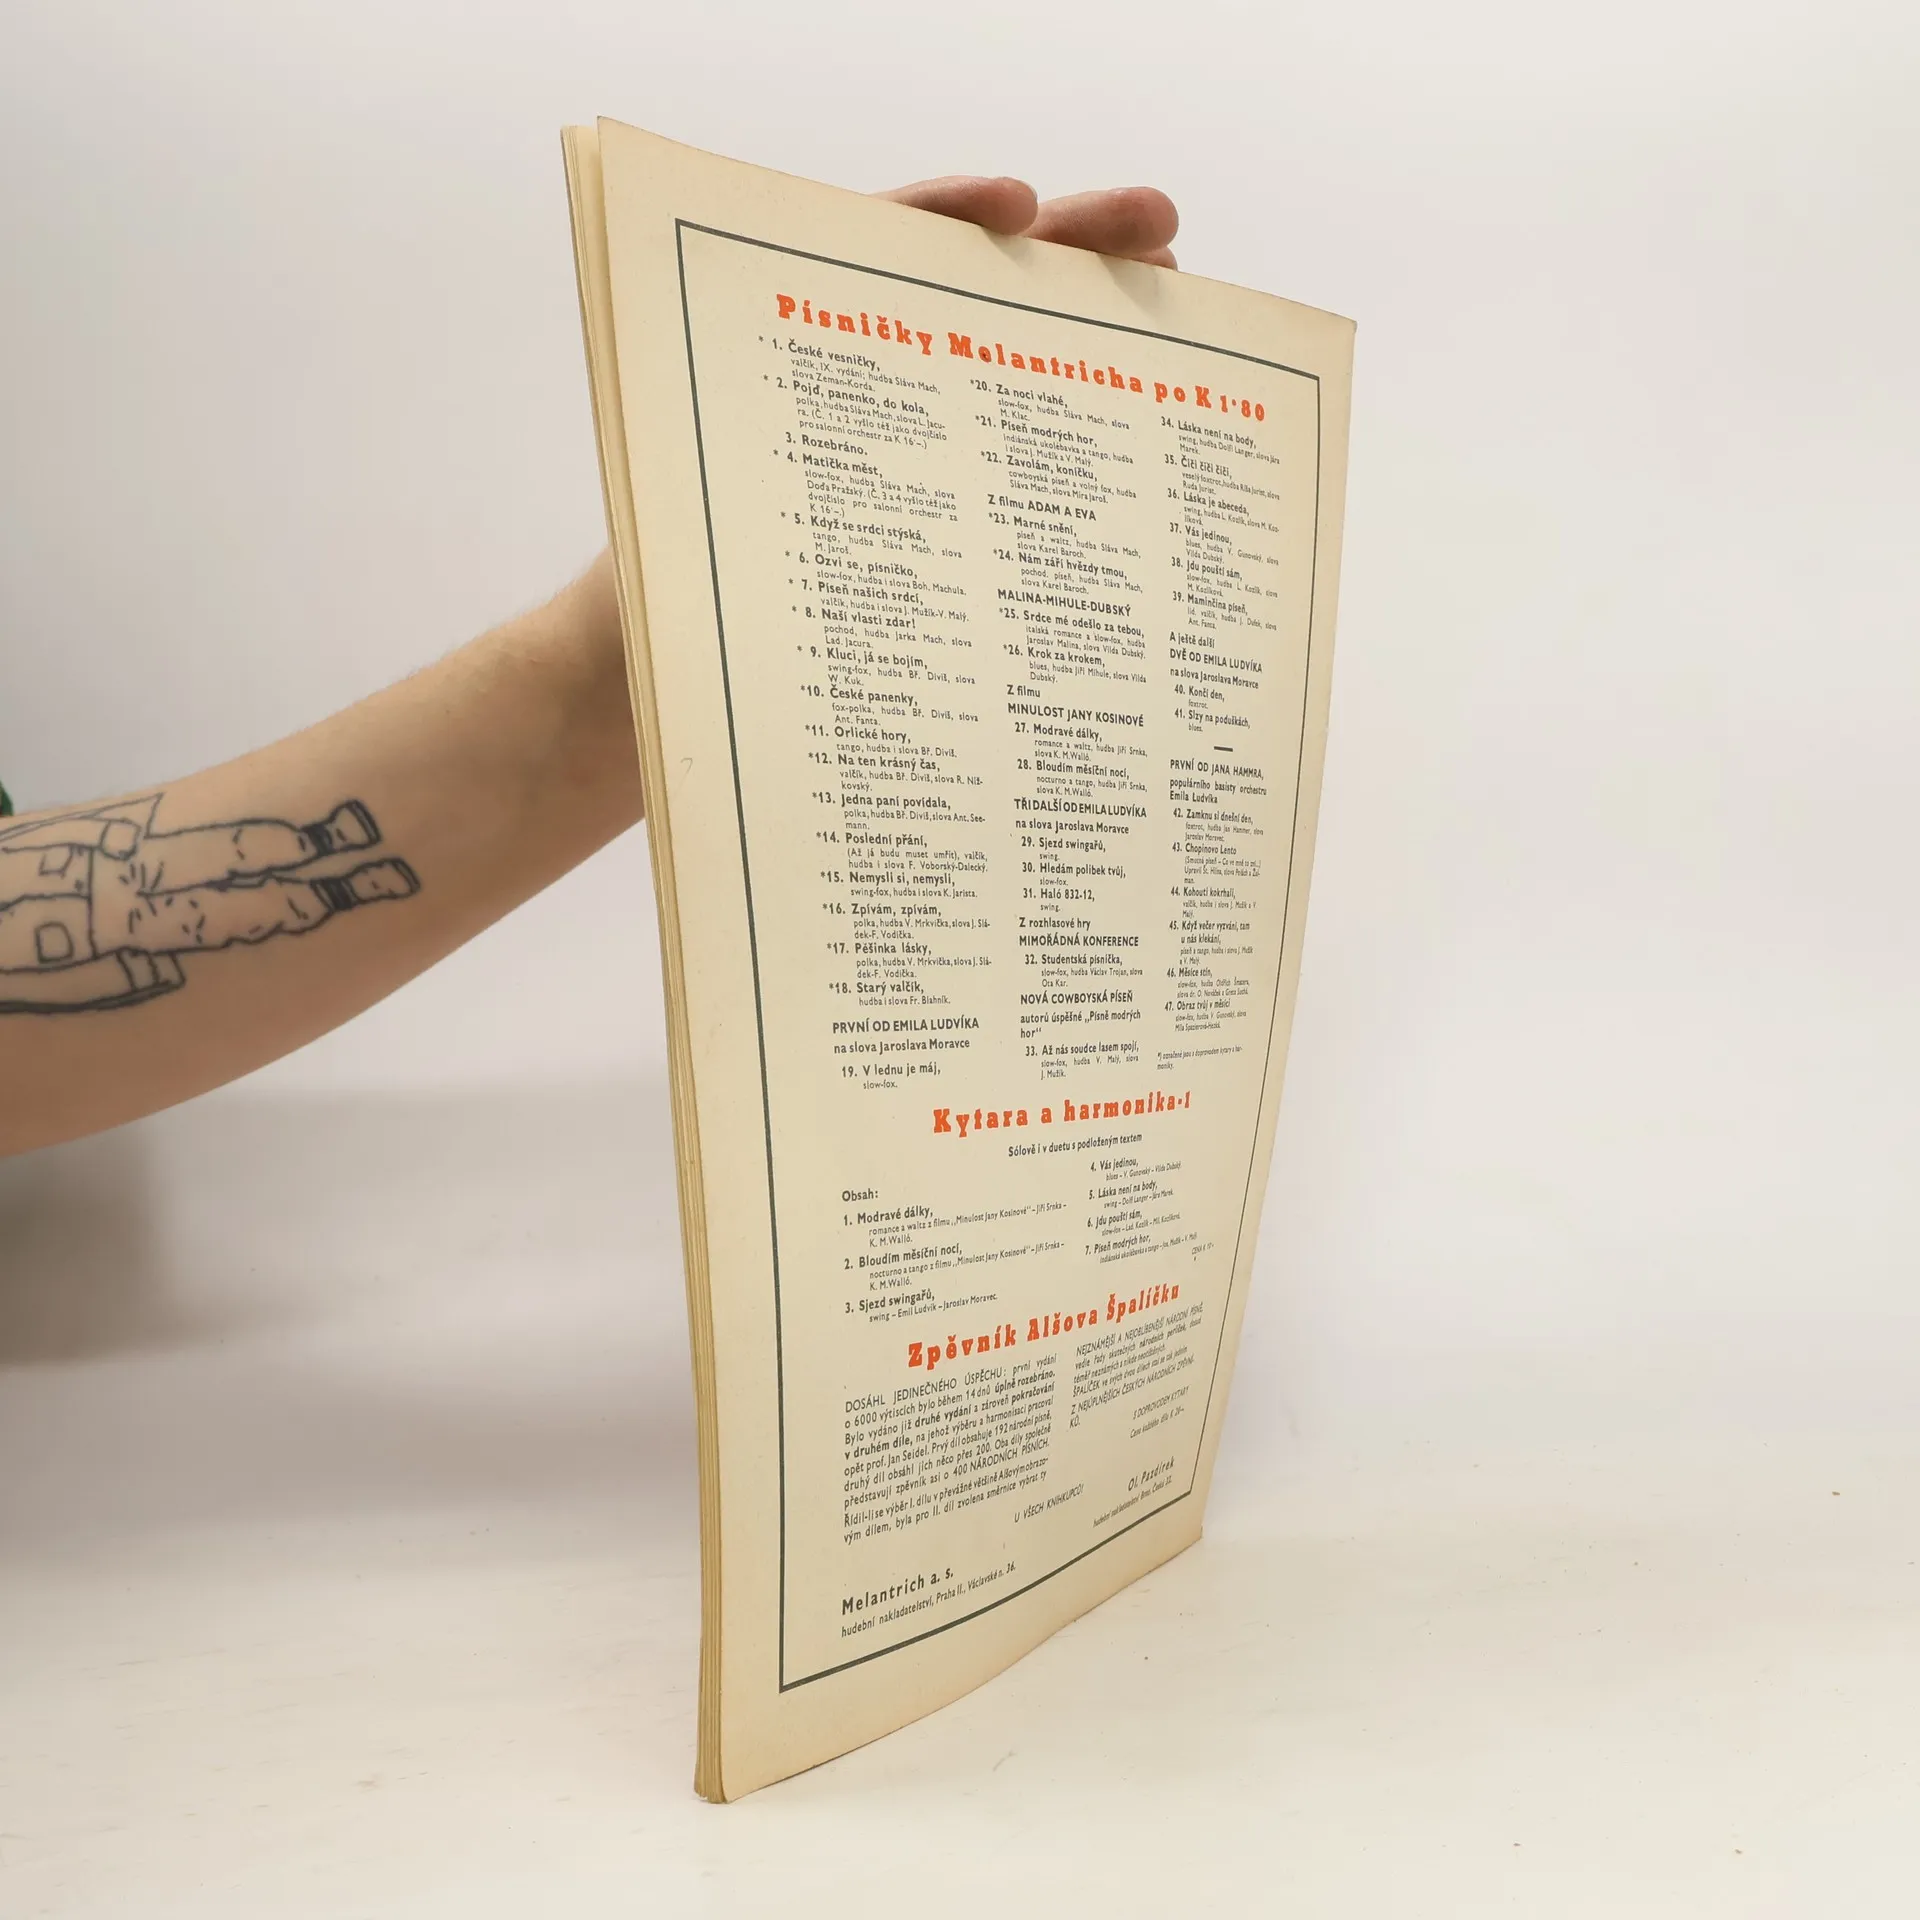 Písničky Melantricha po K 1·80
* 1. České vesničky,
valčík, IX. vydání; hudba Sláva Mach,
slova Zeman-Korda.
* 2. Pojď, panenko, do kola,
polka, hudba Sláva Mach, slova L. Jacu-
ra. (Č. 1 a 2 vyšlo též jako dvojčíslo
pro salonní orchestr za K 16·–.)
3. Rozebráno.
* 4. Matička měst,
slow-fox, hudba Sláva Mach, slova
Doďa Pražský. (Č. 3 a 4 vyšlo též jako
dvojčíslo pro salonní orchestr za
K 16·–.)
* 5. Když se srdci stýská,
tango, hudba Sláva Mach, slova
M. Jaroš.
* 6. Ozvi se, písničko,
slow-fox, hudba i slova Boh. Machula.
* 7. Píseň našich srdcí,
valčík, hudba i slova J. Mužík-V. Malý.
* 8. Naší vlasti zdar!
pochod, hudba Jarka Mach, slova
Lad. Jacura.
* 9. Kluci, já se bojím,
swing-fox, hudba Bř. Diviš, slova
W. Kuk.
*10. České panenky,
fox-polka, hudba Bř. Diviš, slova
Ant. Fanta.
*11. Orlické hory,
tango, hudba i slova Bř. Diviš.
*12. Na ten krásný čas,
valčík, hudba Bř. Diviš, slova R. Niž-
kovský.
*13. Jedna paní povídala,
polka, hudba Bř. Diviš, slova Ant. See-
mann.
*14. Poslední přání,
(Až já budu muset umřít), valčík,
hudba i slova F. Voborský-Dalecký.
*15. Nemysli si, nemysli,
swing-fox, hudba i slova K. Jarista.
*16. Zpívám, zpívám,
polka, hudba V. Mrkvička, slova J. Slá-
dek-F. Vodička.
*17. Pěšinka lásky,
polka, hudba V. Mrkvička, slova J. Slá-
dek-F. Vodička.
*18. Starý valčík,
hudba i slova Fr. Blahník.
PRVNÍ OD EMILA LUDVÍKA
na slova Jaroslava Moravce
19. V lednu je máj,
slow-fox.
*20. Za noci vlahé,
slow-fox, hudba Sláva Mach, slova
M. Klac.
*21. Píseň modrých hor,
indiánská ukolébavka a tango, hudba
i slova J. Mužík a V. Malý.
*22. Zavolám, koníčku,
cowboyská píseň a volný fox, hudba
Sláva Mach, slova Mira Jaroš.
Z filmu ADAM A EVA
*23. Marné snění,
píseň a waltz, hudba Sláva Mach,
slova Karel Baroch.
*24. Nám září hvězdy tmou,
pochod. píseň, hudba Sláva Mach,
slova Karel Baroch.
MALINA-MIHULE-DUBSKÝ
*25. Srdce mé odešlo za tebou,
italská romance a slow-fox, hudba
Jaroslav Malina, slova Vilda Dubský.
*26. Krok za krokem,
blues, hudba Jiří Mihule, slova Vilda
Dubský.
Z filmu
MINULOST JANY KOSINOVÉ
27. Modravé dálky,
romance a waltz, hudba Jiří Srnka,
slova K. M. Walló.
28. Bloudím měsíční nocí,
nocturno a tango, hudba Jiří Srnka,
slova K. M. Walló.
TŘI DALŠÍ OD EMILA LUDVÍKA
na slova Jaroslava Moravce
29. Sjezd swingařů,
swing.
30. Hledám polibek tvůj,
slow-fox.
31. Haló 832-12,
swing.
Z rozhlasové hry
MIMOŘÁDNÁ KONFERENCE
32. Studentská písnička,
slow-fox, hudba Václav Trojan, slova
Ota Kar.
NOVÁ COWBOYSKÁ PÍSEŇ
autorů úspěšné „Písně modrých
hor“
33. Až nás soudce lasem spojí,
slow-fox, hudba V. Malý, slova
J. Mužík.
34. Láska není na body,
swing, hudba Dolfi Langer, slova Jára
Marek.
35. Čiči čiči čiči,
veselý foxtrot, hudba Ríša Jurist, slova
Ruda Jurist.
36. Láska je abeceda,
swing, hudba L. Kozlík, slova M. Koz-
líková.
37. Vás jedinou,
blues, hudba V. Gunovský, slova
Vilda Dubský.
38. Jdu pouští sám,
slow-fox, hudba L. Kozlík, slova
M. Kozlíková.
39. Maminčina píseň,
lid. valčík, hudba J. Dufek, slova
Ant. Fanta.
A ještě další
DVĚ OD EMILA LUDVÍKA
na slova Jaroslava Moravce
40. Končí den,
foxtrot.
41. Slzy na poduškách,
blues.
PRVNÍ OD JANA HAMMRA,
populárního basisty orchestru
Emila Ludvíka
42. Zamknu si dnešní den,
foxtrot, hudba Jan Hammer, slova
Jaroslav Moravec.
43. Chopinovo Lento
(Smutná píseň – Co ve mně to zní...)
Upravil St. Hlína, slova Polách a Žal-
man.
44. Kohouti kokrhali,
valčík, hudba i slova J. Mužík a V.
Malý.
45. Když večer vyzvání, tam
u nás klekání,
píseň a tango, hudba i slova J. Mužík
a V. Malý.
46. Měsíce stín,
slow-fox, hudba Oldřich
slova dr. O. Nováček a Greta
47. Obraz tvůj v měsíci
slow-fox, hudba V. Gunovský, slova
Míla Spazierová-Hezká.
*) označené jsou s doprovodem kytary a har-
moniky.
Kytara a harmonika-1
Sólově i v duetu s podloženým textem
Obsah:
1. Modravé dálky,
romance a waltz z filmu „Minulost Jany Kosinové“ – Jiří Srnka –
K. M. Walló.
2. Bloudím měsíční nocí,
nocturno a tango z filmu „Minulost Jany Kosinové“ – Jiří Srnka –
K. M. Walló.
3. Sjezd swingařů,
swing – Emil Ludvík – Jaroslav Moravec.
4. Vás jedinou,
blues – V. Gunovský – Vilda Dubský.
5. Láska není na body,
swing – Dolfi Langer – Jára Marek.
6. Jdu pouští sám,
slow-fox – Lad. Kozlík – Mil. Kozlíková.
7. Píseň modrých hor,
indiánská ukolébavka a tango – Jos. Mužík – V. Malý.
CENA K 17·–
Zpěvník Alšova Špalíčku
DOSÁHL JEDINEČNÉHO ÚSPĚCHU: první vydání
o 6000 výtiscích bylo během 14 dnů úplně rozebráno.
Bylo vydáno již druhé vydání a zároveň pokračování
v druhém díle, na jehož výběru a harmonisaci pracoval
opět prof. Jan Seidel. Prvý díl obsahuje 192 národní písně,
druhý díl obsáhl jich něco přes 200. Oba díly společně
představují zpěvník asi o 400 NÁRODNÍCH PÍSNÍCH.
Řídil-li se výběr I. dílu v převážné většině Alšovým obrazo-
vým dílem, byla pro II. díl zvolena směrnice vybrat ty
NEJZNÁMĚJŠÍ A NEJOBLÍBENĚJŠÍ NÁRODNÍ PÍSNĚ,
vedle řady skutečných národních perliček, dosud
téměř neznámých a nikde neotištěných.
ŠPALÍČEK ve svých dvou dílech stal se tak jedním
Z NEJÚPLNĚJŠÍCH ČESKÝCH NÁRODNÍCH ZPĚVNÍ-
KŮ.
S DOPROVODEM KYTARY
Cena každého dílu K 20·–
U VŠECH KNIHKUPCŮ!
Melantrich a. s.
hudební nakladatelství, Praha II., Václavské n. 36.
Ol. Pazdírek
hudební nakladatelství Brno, Česká 32.